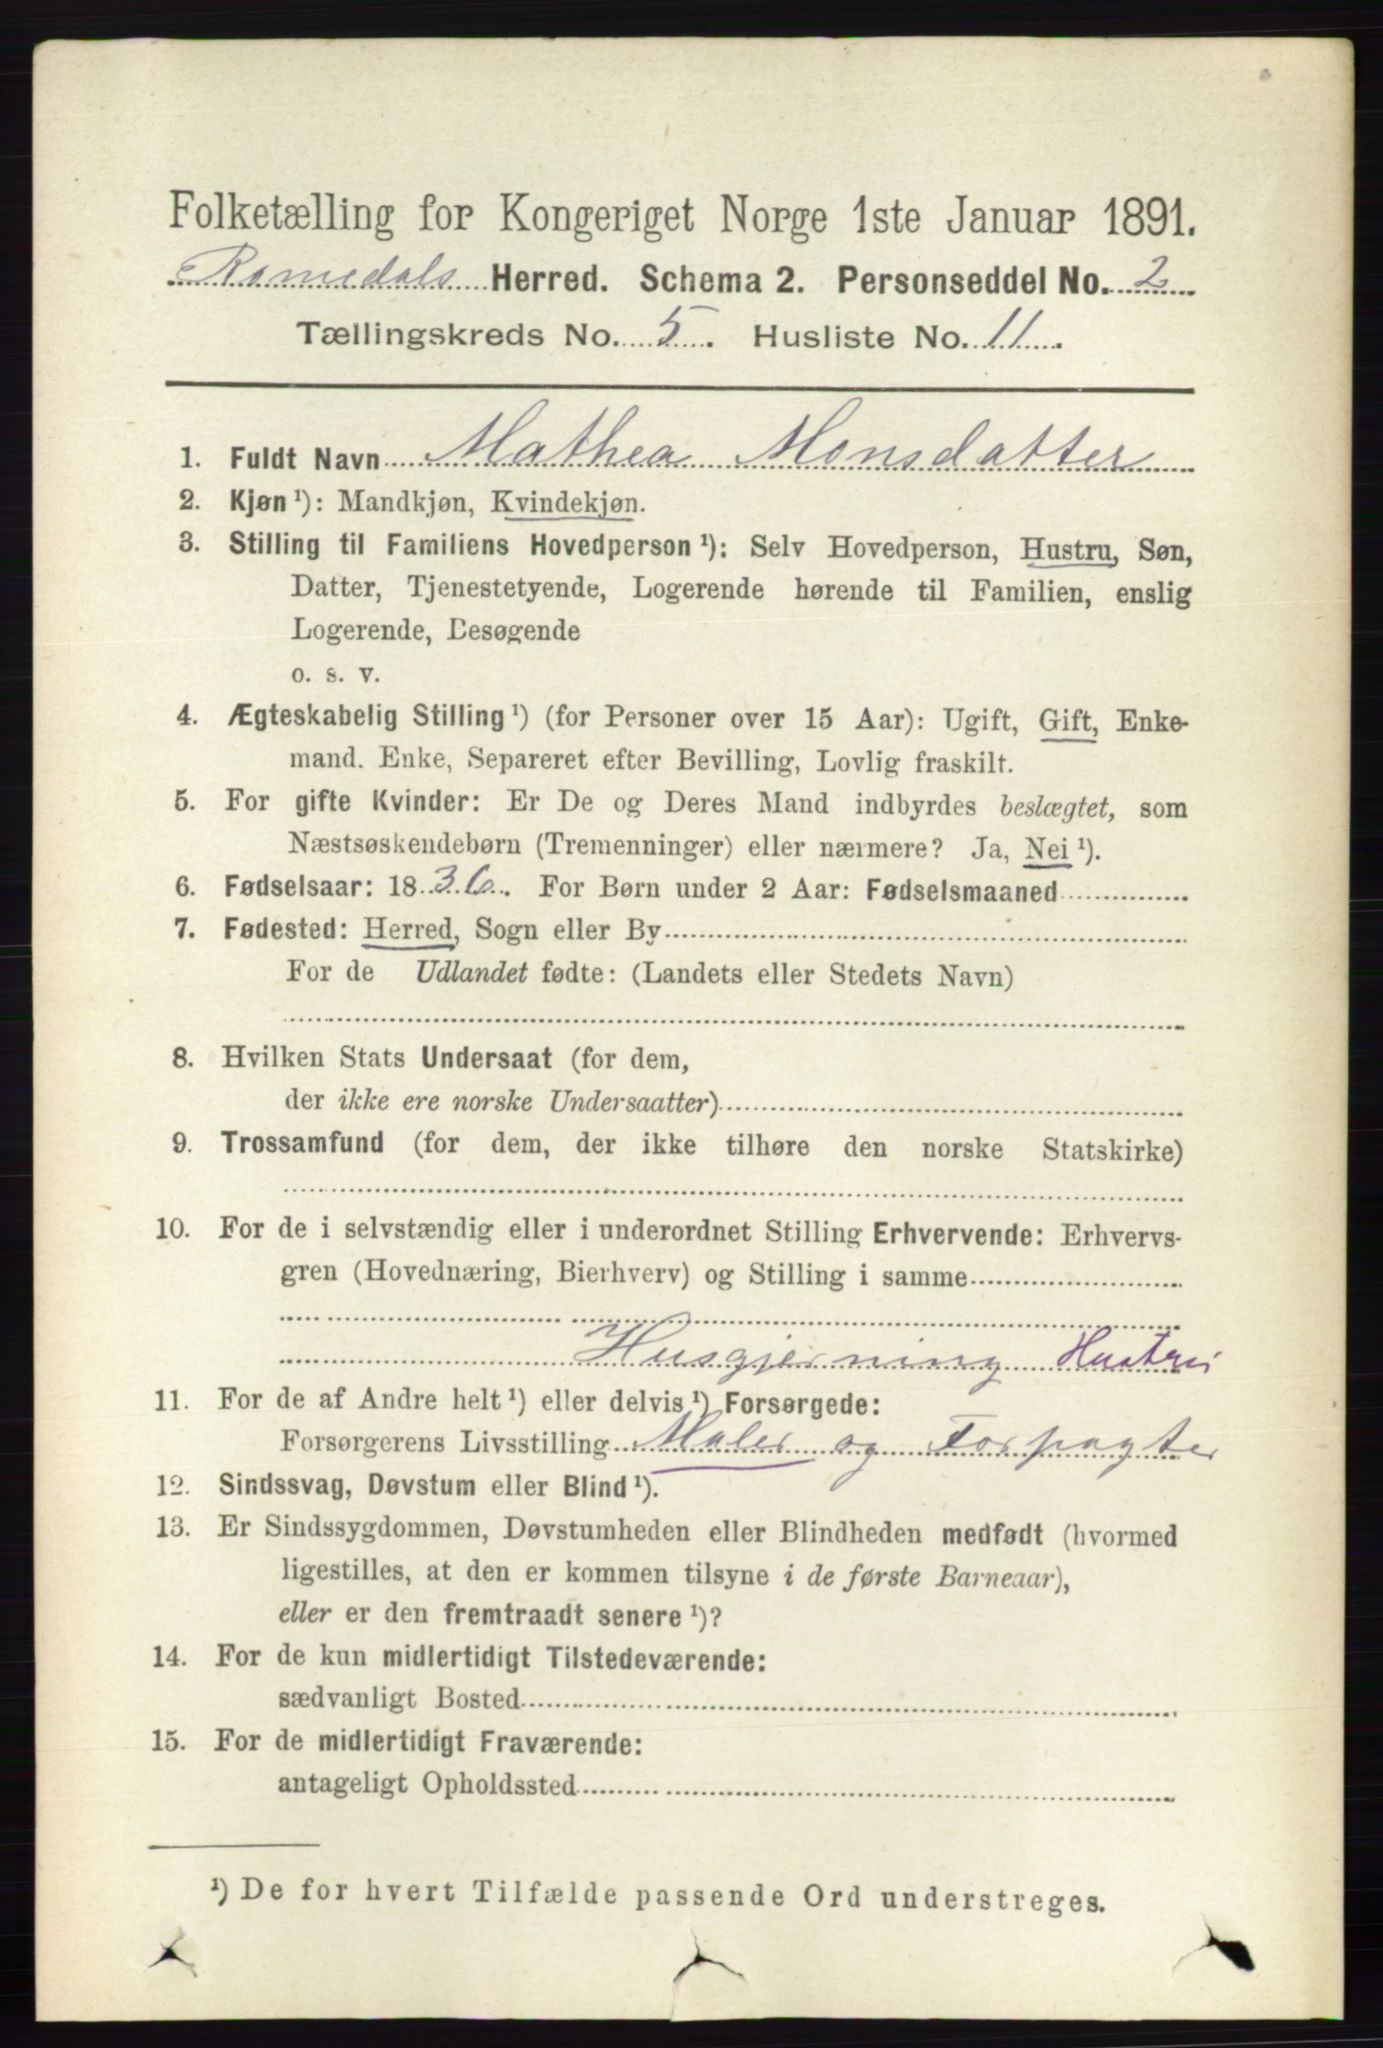 Folketælling for Kongeriget Norge 1ste Januar 1891.
Romedals Herred. Schema 2. Personseddel No. 2
Tællingskreds No. 5. Husliste No. 11.
1. Fuldt Navn Mathea Monsdatter
2. Kjøn ¹): Mandkjøn, Kvindekjøn.
3. Stilling til Familiens Hovedperson ¹): Selv Hovedperson, Hustru, Søn,
Datter, Tjenestetyende, Logerende hørende til Familien, enslig
Logerende, Besøgende
o. s. v.
4. Ægteskabelig Stilling ¹) (for Personer over 15 Aar): Ugift, Gift, Enke-
mand. Enke, Separeret efter Bevilling, Lovlig fraskilt.
5. For gifte Kvinder: Er De og Deres Mand indbyrdes beslægtet, som
Næstsøskendebørn (Tremenninger) eller nærmere? Ja, Nei ¹).
6. Fødselsaar: 1836. For Børn under 2 Aar: Fødselsmaaned
7. Fødested: Herred, Sogn eller By
For de Udlandet fødte: (Landets eller Stedets Navn)
8. Hvilken Stats Undersaat (for dem,
der ikke ere norske Undersaatter)
9. Trossamfund (for dem, der ikke tilhøre den norske Statskirke)
10. For de i selvstændig eller i underordnet Stilling Erhvervende: Erhvervs-
gren (Hovednæring, Bierhverv) og Stilling i samme
Husgjerning Hustru
11. For de af Andre helt ¹) eller delvis ¹) Forsørgede:
Forsørgerens Livsstilling Maler og Forpagter
12. Sindssvag, Døvstum eller Blind ¹).
13. Er Sindssygdommen, Døvstumheden eller Blindheden medfødt (hvormed
ligestilles, at den er kommen tilsyne i de første Barneaar),
eller er den fremtraadt senere ¹)?
14. For de kun midlertidigt Tilstedeværende:
sædvanligt Bosted
15. For de midlertidigt Fraværende:
antageligt Opholdssted
¹) De for hvert Tilfælde passende Ord understreges.